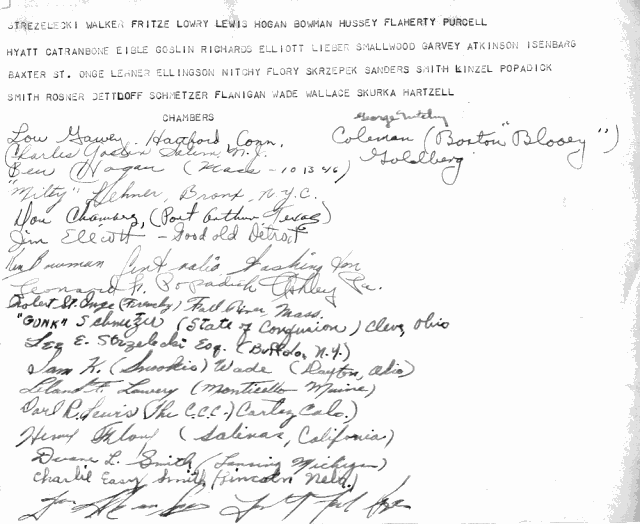 STRZELECKI WALKER FRITZE LOWRY LEWIS HOGAN BOWMAN HUSSEY FLAHERTY PURCELL
HYATT CATRANBONE EIBLE GOSLIN RICHARDS ELLIOTT LIEBER SMALLWOOD GARVEY ATKINSON ISENBARG
BAXTER ST. ONGE LEHNER ELLINGSON NITCHY FLORY SKRZEPEK SANDERS SMITH KINZEL POPADICK
SMITH ROSNER DETTLOFF SCHMETZER FLANIGAN WADE WALLACE SKURKA HARTZELL
CHAMBERS
George Nitchy
Lou Garvey. Hartford Conn.
Coleman (Boston "Blooey")
Goldberg
Charles Goslin Salem, N.J.
Ben Hogan (Mass - 10 13 46)
"Mitty" Lehner, Bronx, N.Y.C.
Don Chambers, (Port Arthur Texas)
Jim Elliott - Good old Detroit
Ken Bowman
Leonard F. Popadick Ashley Pa.
Robert St. Onge (Frenchy) Fall River, Mass.
"GUNK" Schmetzer (State of Confusion) Cleve, Ohio
Leo E. Strzelecki Esq. (Buffalo, N.Y.)
Sam K. (Snookie) Wade (Dayton, Ohio)
Leland F. Lowery (Monticello Maine)
Earl R. Lewis (The C.C.C.) Cortez Colo.)
Henry Flory (Salinas, California)
Duane L. Smith (Lansing Michigan)
Charlie Easy Smith (Lincoln Neb.)